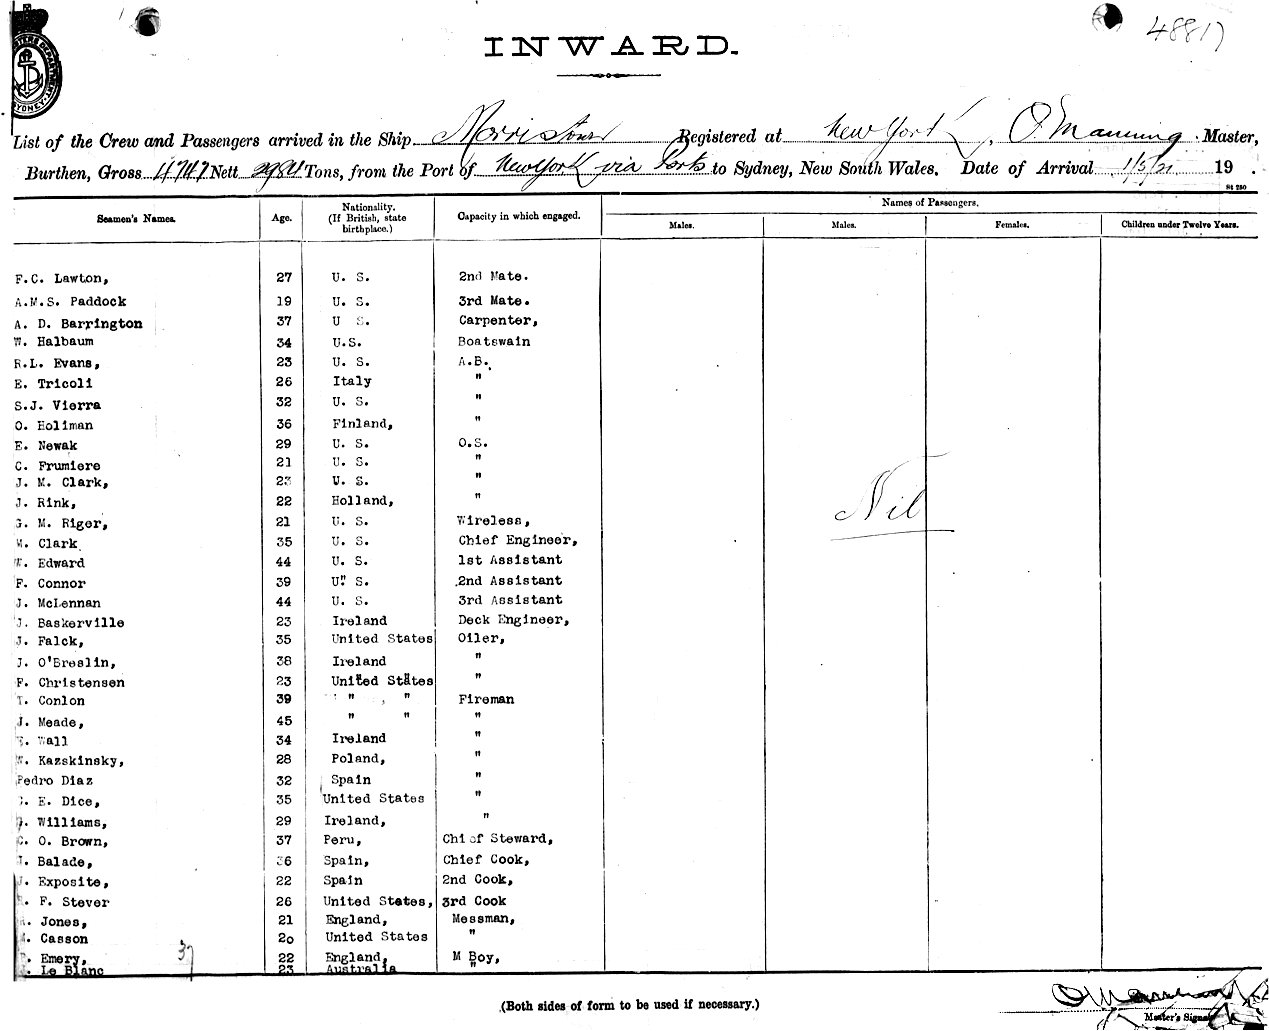 48817
INWARD.
List of the Crew and Passengers arrived in the Ship Registered at New York, O. Manning Master,
Burthen, Gross 4747 Nett 2984 Tons, from the Port of New York via Ports to Sydney, New South Wales. Date of Arrival 1/5/21 19 .
St 280
Seamen's Names. Age. Nationality. (If British, state birthplace.) Capacity in which engaged. Names of Passengers.
Males. Males. Females. Children under Twelve Years.
F.C. Lawton, 27 U. S. 2nd Mate.
A.M.S. Paddock 19 U. S. 3rd Mate.
A. D. Barrington 37 U S. Carpenter,
W. Halbaum 34 U.S. Boatswain
R.L. Evans, 23 U. S. A.B.
E. Tricoli 26 Italy "
S.J. Vierra 32 U. S. "
O. Holiman 36 Finland, "
E. Newak 29 U. S. O.S.
C. Frumiere 21 U. S. "
J. M. Clark, 23 U. S. "
J. Rink, 22 Holland, "
G. M. Riger, 21 U. S. Wireless,
M. Clark 35 U. S. Chief Engineer,
W. Edward 44 U. S. 1st Assistant
F. Connor 39 U. S. 2nd Assistant
J. McLennan 44 U. S. 3rd Assistant
J. Baskerville 23 Ireland Deck Engineer,
J. Falck, 35 United States Oiler,
J. O'Breslin, 38 Ireland "
F. Christensen 23 United States "
T. Conlon 39 " , " Fireman
J. Meade, 45 " " "
Wall 34 Ireland "
W. Kazskinsky, 28 Poland, "
Pedro Diaz 32 Spain "
E. Dice, 35 United States "
Williams, 29 Ireland, "
C. O. Brown, 37 Peru, Chief Steward,
Balade, 36 Spain, Chief Cook,
J. Exposite, 22 Spain 2nd Cook,
F. Stever 26 United States, 3rd Cook
Jones, 21 England, Messman,
Casson 20 United States "
Emery, 22 England, M Boy,
Le Blanc 23 Australia "
Nil
37
(Both sides of form to be used if necessary.)
O Manning
Master's